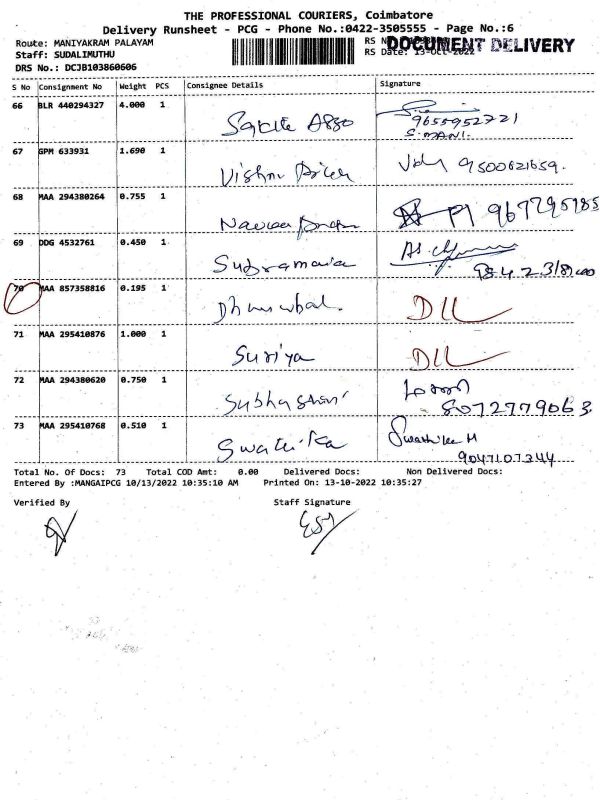 THE PROFESSIONAL COURIERS, Coimbatore
Delivery Runsheet - PCG - Phone No.:0422-3505555 - Page No.:6
Route: MANIYAKRAM PALAYAM
Staff: SUDALIMUTHU
DRS No.: DCJB103860606
RS Date: 13-Oct-2022
DOCUMENT DELIVERY
S No Consignment No Weight PCS Consignee Details Signature
66 BLR 440294327 4.000 1
9655952721
S.MANI.
67 GPM 633931 1.690 1 Vishnu 9500621659.
68 MAA 294380264 0.755 1
69 DDG 4532761 0.450 1 Subramania
70 MAA 857358816 0.195 1 DLL
71 MAA 295410876 1.000 1 Suriya DLL
72 MAA 294380620 0.750 1 Subhashini
8072779063
73 MAA 295410768 0.510 1 Swathika Swathika M
9047107344
Total No. Of Docs: 73 Total COD Amt: 0.00 Delivered Docs: Non Delivered Docs:
Entered By :MANGAIPCG 10/13/2022 10:35:10 AM Printed On: 13-10-2022 10:35:27
Verified By Staff Signature